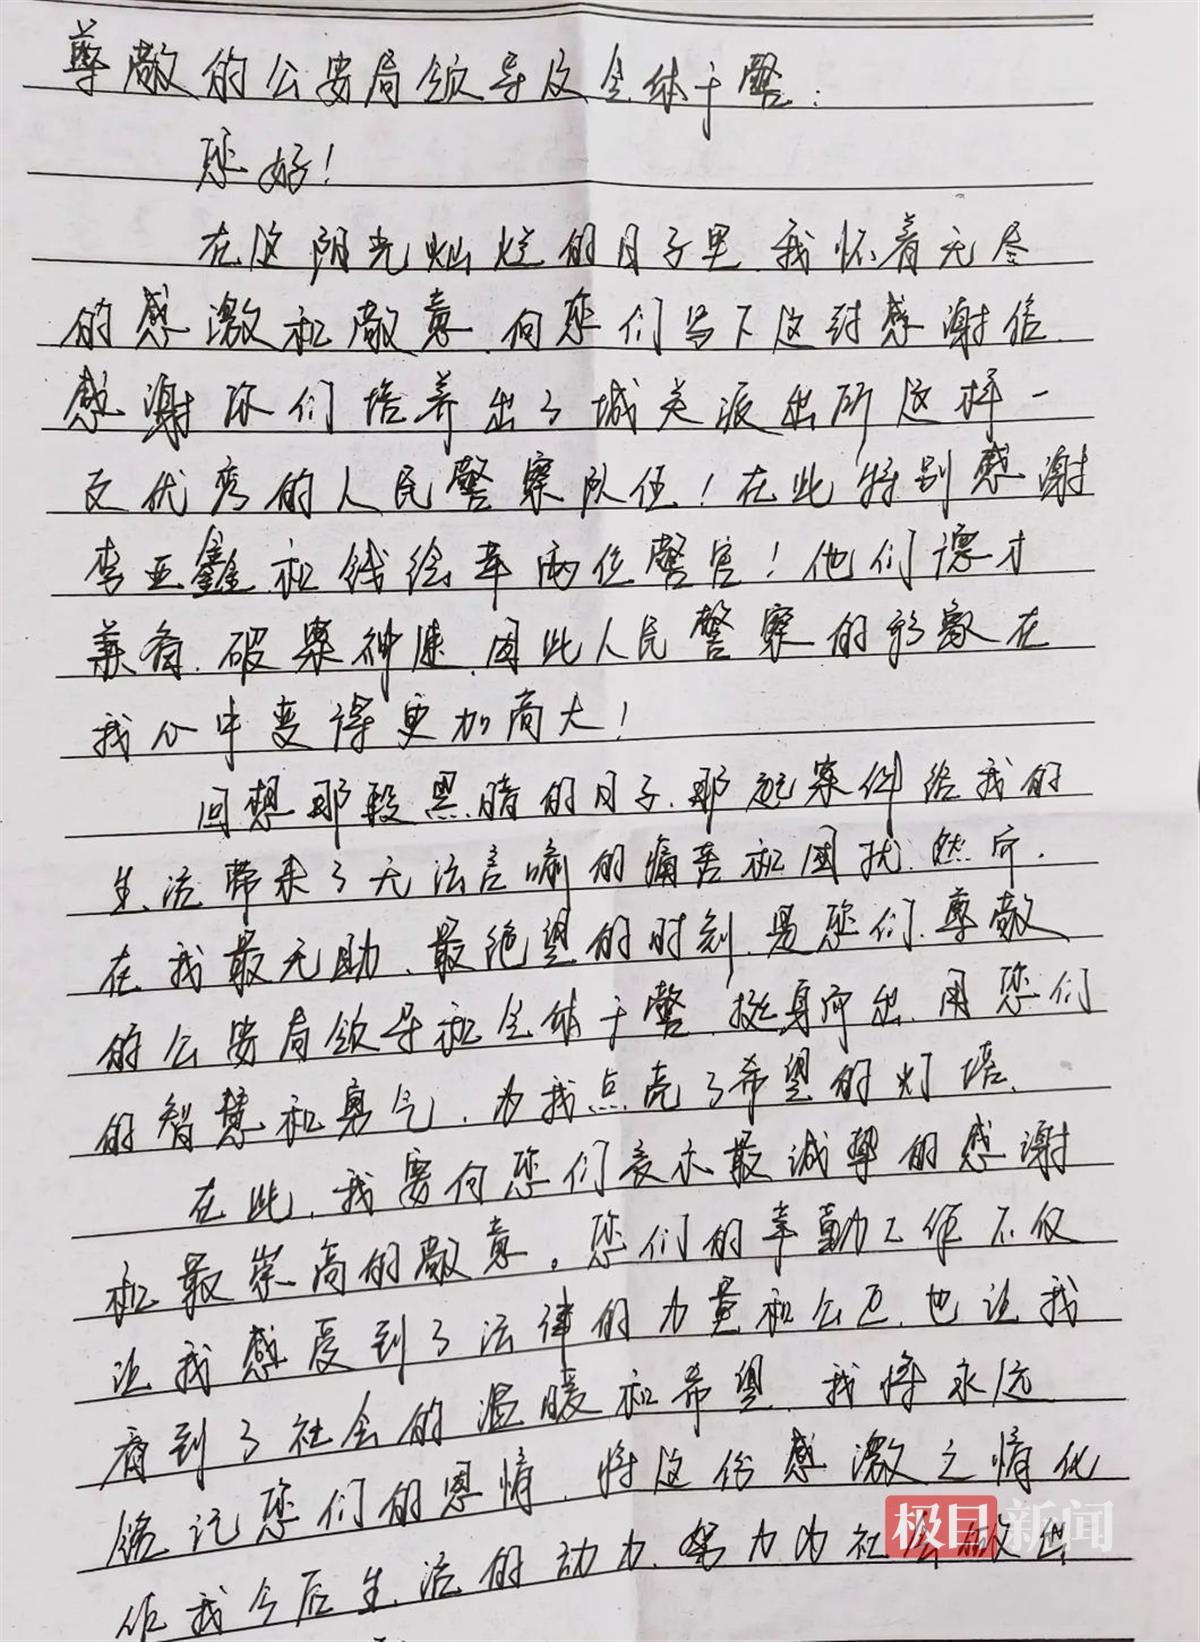 尊敬的公安局领导及全体干警:
您好!
在这阳光灿烂的日子里,我怀着无尽
的感激和敬意,向您们写下这封感谢信.
感谢你们培养出了城关派出所这样一
支优秀的人民警察队伍!在此特别感谢
李亚鑫和钱绘幸两位警官!他们德才
兼备,破案神速,因此人民警察的形象在
我心中变得更加高大!
回想那段黑暗的日子,那起案件给我的
生活带来了无法言喻的痛苦和困扰.然而,
在我最无助、最绝望的时刻,是您们,尊敬
的公安局领导和全体干警,挺身而出,用您们
的智慧和勇气,为我点亮了希望的灯塔.
在此,我要向您们表示最诚挚的感谢
和最崇高的敬意。您们的辛勤工作不仅
让我感受到了法律的力量和公正,也让我
看到了社会的温暖和希望,我将永远
铭记您们的恩情,将这份感激之情化
作我今后生活的动力,努力为社会做出
极目新闻